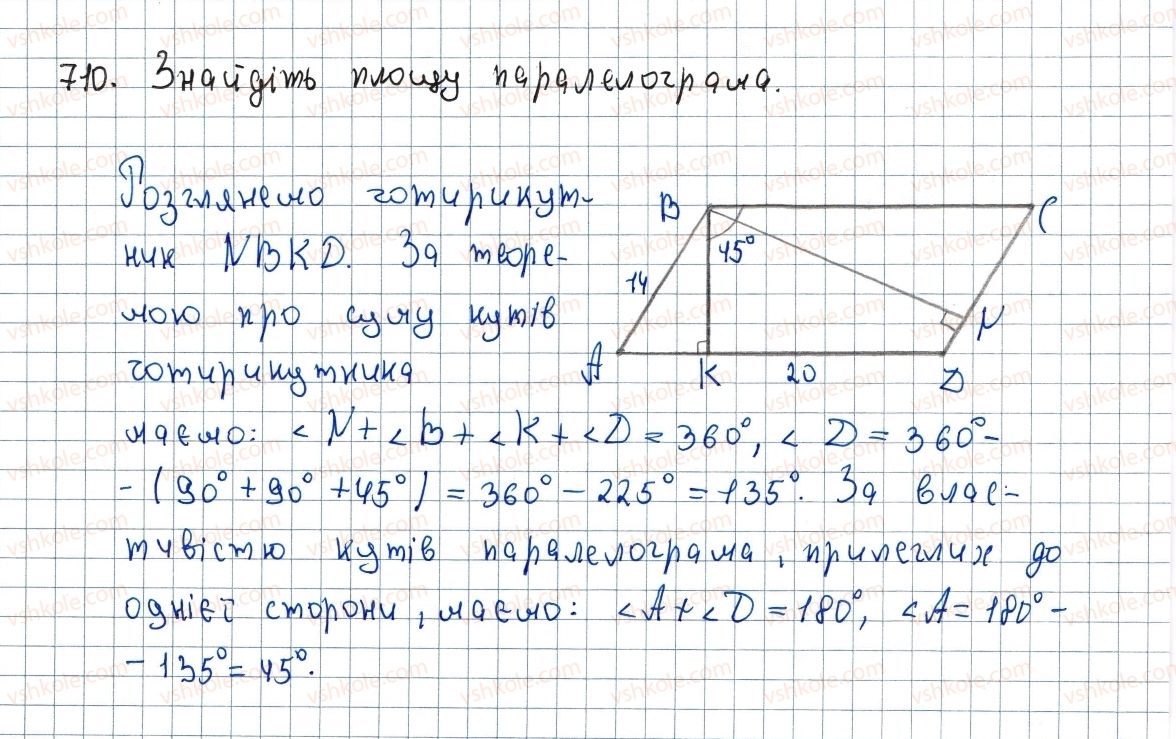 710. Знайдіть площу паралелограма.
Розглянемо чотирикут-
ник NBKD. За теоре-
мою про суму кутів
чотирикутника
B
C
45°
14
N
A
K
20
D
маємо: <N + <B + <K + <D = 360°, < D = 360° -
- (90° + 90° + 45°) = 360° - 225° = 135°. За влас-
тивістю кутів паралелограма, прилеглих до
однієї сторони, маємо: <A + <D = 180°, <A = 180° -
- 135° = 45°.
vshkole.com